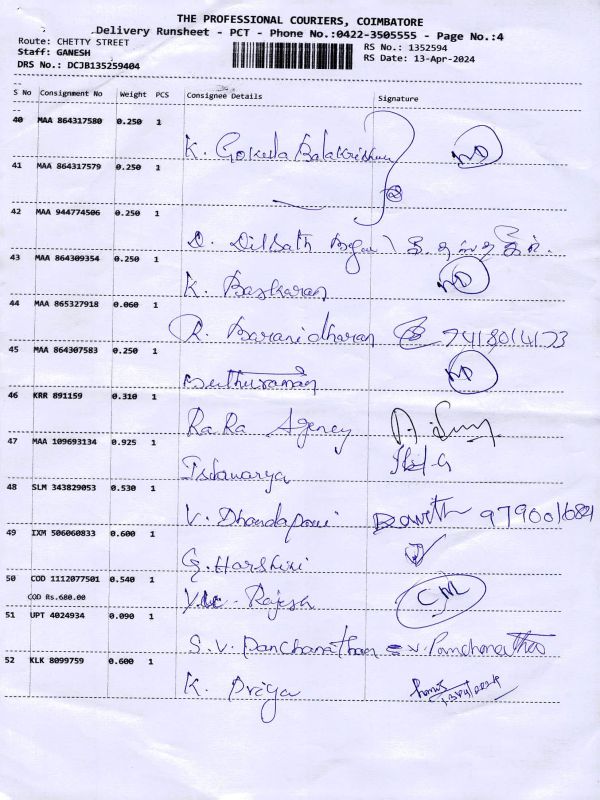 THE PROFESSIONAL COURIERS, COIMBATORE
Delivery Runsheet - PCT - Phone No.:0422-3505555 - Page No.:4
Route: CHETTY STREET
RS No.: 1352594
Staff: GANESH
RS Date: 13-Apr-2024
DRS No.: DCJB135259404
S No Consignment No Weight PCS Consignee Details Signature
40 MAA 864317580 0.250 1
K. Gokula Balakrishnan ND
41 MAA 864317579 0.250 1
42 MAA 944774506 0.250 1
D. Dilsath
43 MAA 864309354 0.250 1
K. Baskaran ND
44 MAA 865327918 0.060 1
R. Baranidharan 7418014173
45 MAA 864307583 0.250 1
Muthuraman ND
46 KRR 891159 0.310 1
RaRa Agency
47 MAA 109693134 0.925 1
48 SLM 343829053 0.530 1
V. Dhandapani
49 IXM 506060833 0.600 1
G. Harshini
50 COD 1112077501 0.540 1
COD Rs.680.00
Rajesh CM
51 UPT 4024934 0.090 1
S.V. Panchanathan
52 KLK 8099759 0.600 1
K. Priya